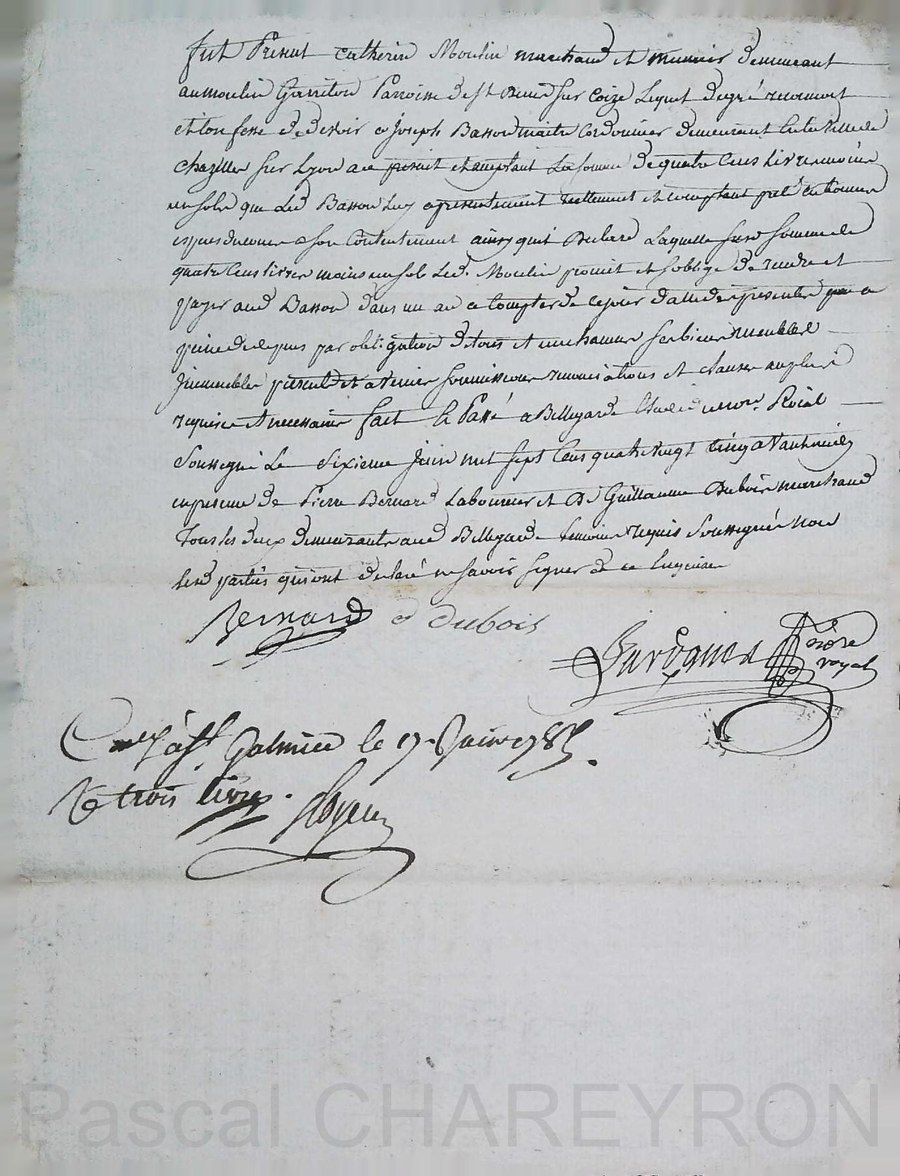 fut Present Catherin Moulin marchand et munier demeurant
au moulin Garriton Parroisse de St Denis sur Coize Lequel de gré reconnoit
et Confesse de devoir a Joseph Basson maitre Cordonnier demeurant en la Ville de
chazelles sur Lyon acc present et acceptant La somme de quatre Cens Livres moins
un sols que Led Basson Luy a presentement reellement et comptant preté en bonnes
especes de cours a Son Contentement ainsy qu'il Declare Laquelle susd somme de
quatre Cens livres moins un sols Led. Moulin promit et s'oblige de rendre et
payer aud Basson dans un an a Compter de ce jour d'alle des presentes a
peine de depens par obligation de tous et un chacuns ses biens meubles
immeubles presents et a venir soumissions renonciations et clauses
requises et necessaires fait et Passé a Bellegarde Etude du nore. Roial
Soussigné Le Sixieme Juin mil Sept Cens quatre vingt Cinq avant midy
en presence de Pierre Bernard Laboureur et de Guillaume Dubois marchand
Tous les deux demeurants aud Bellegarde temoins requis Soussignés non
Lesd parties qui ont declaré ne savoir signer de ce Enquises
Bernard Dubois
nore
royal
à St. Galmier le 17 Juin 1785.
trois livres.
Pascal CHAREYRON